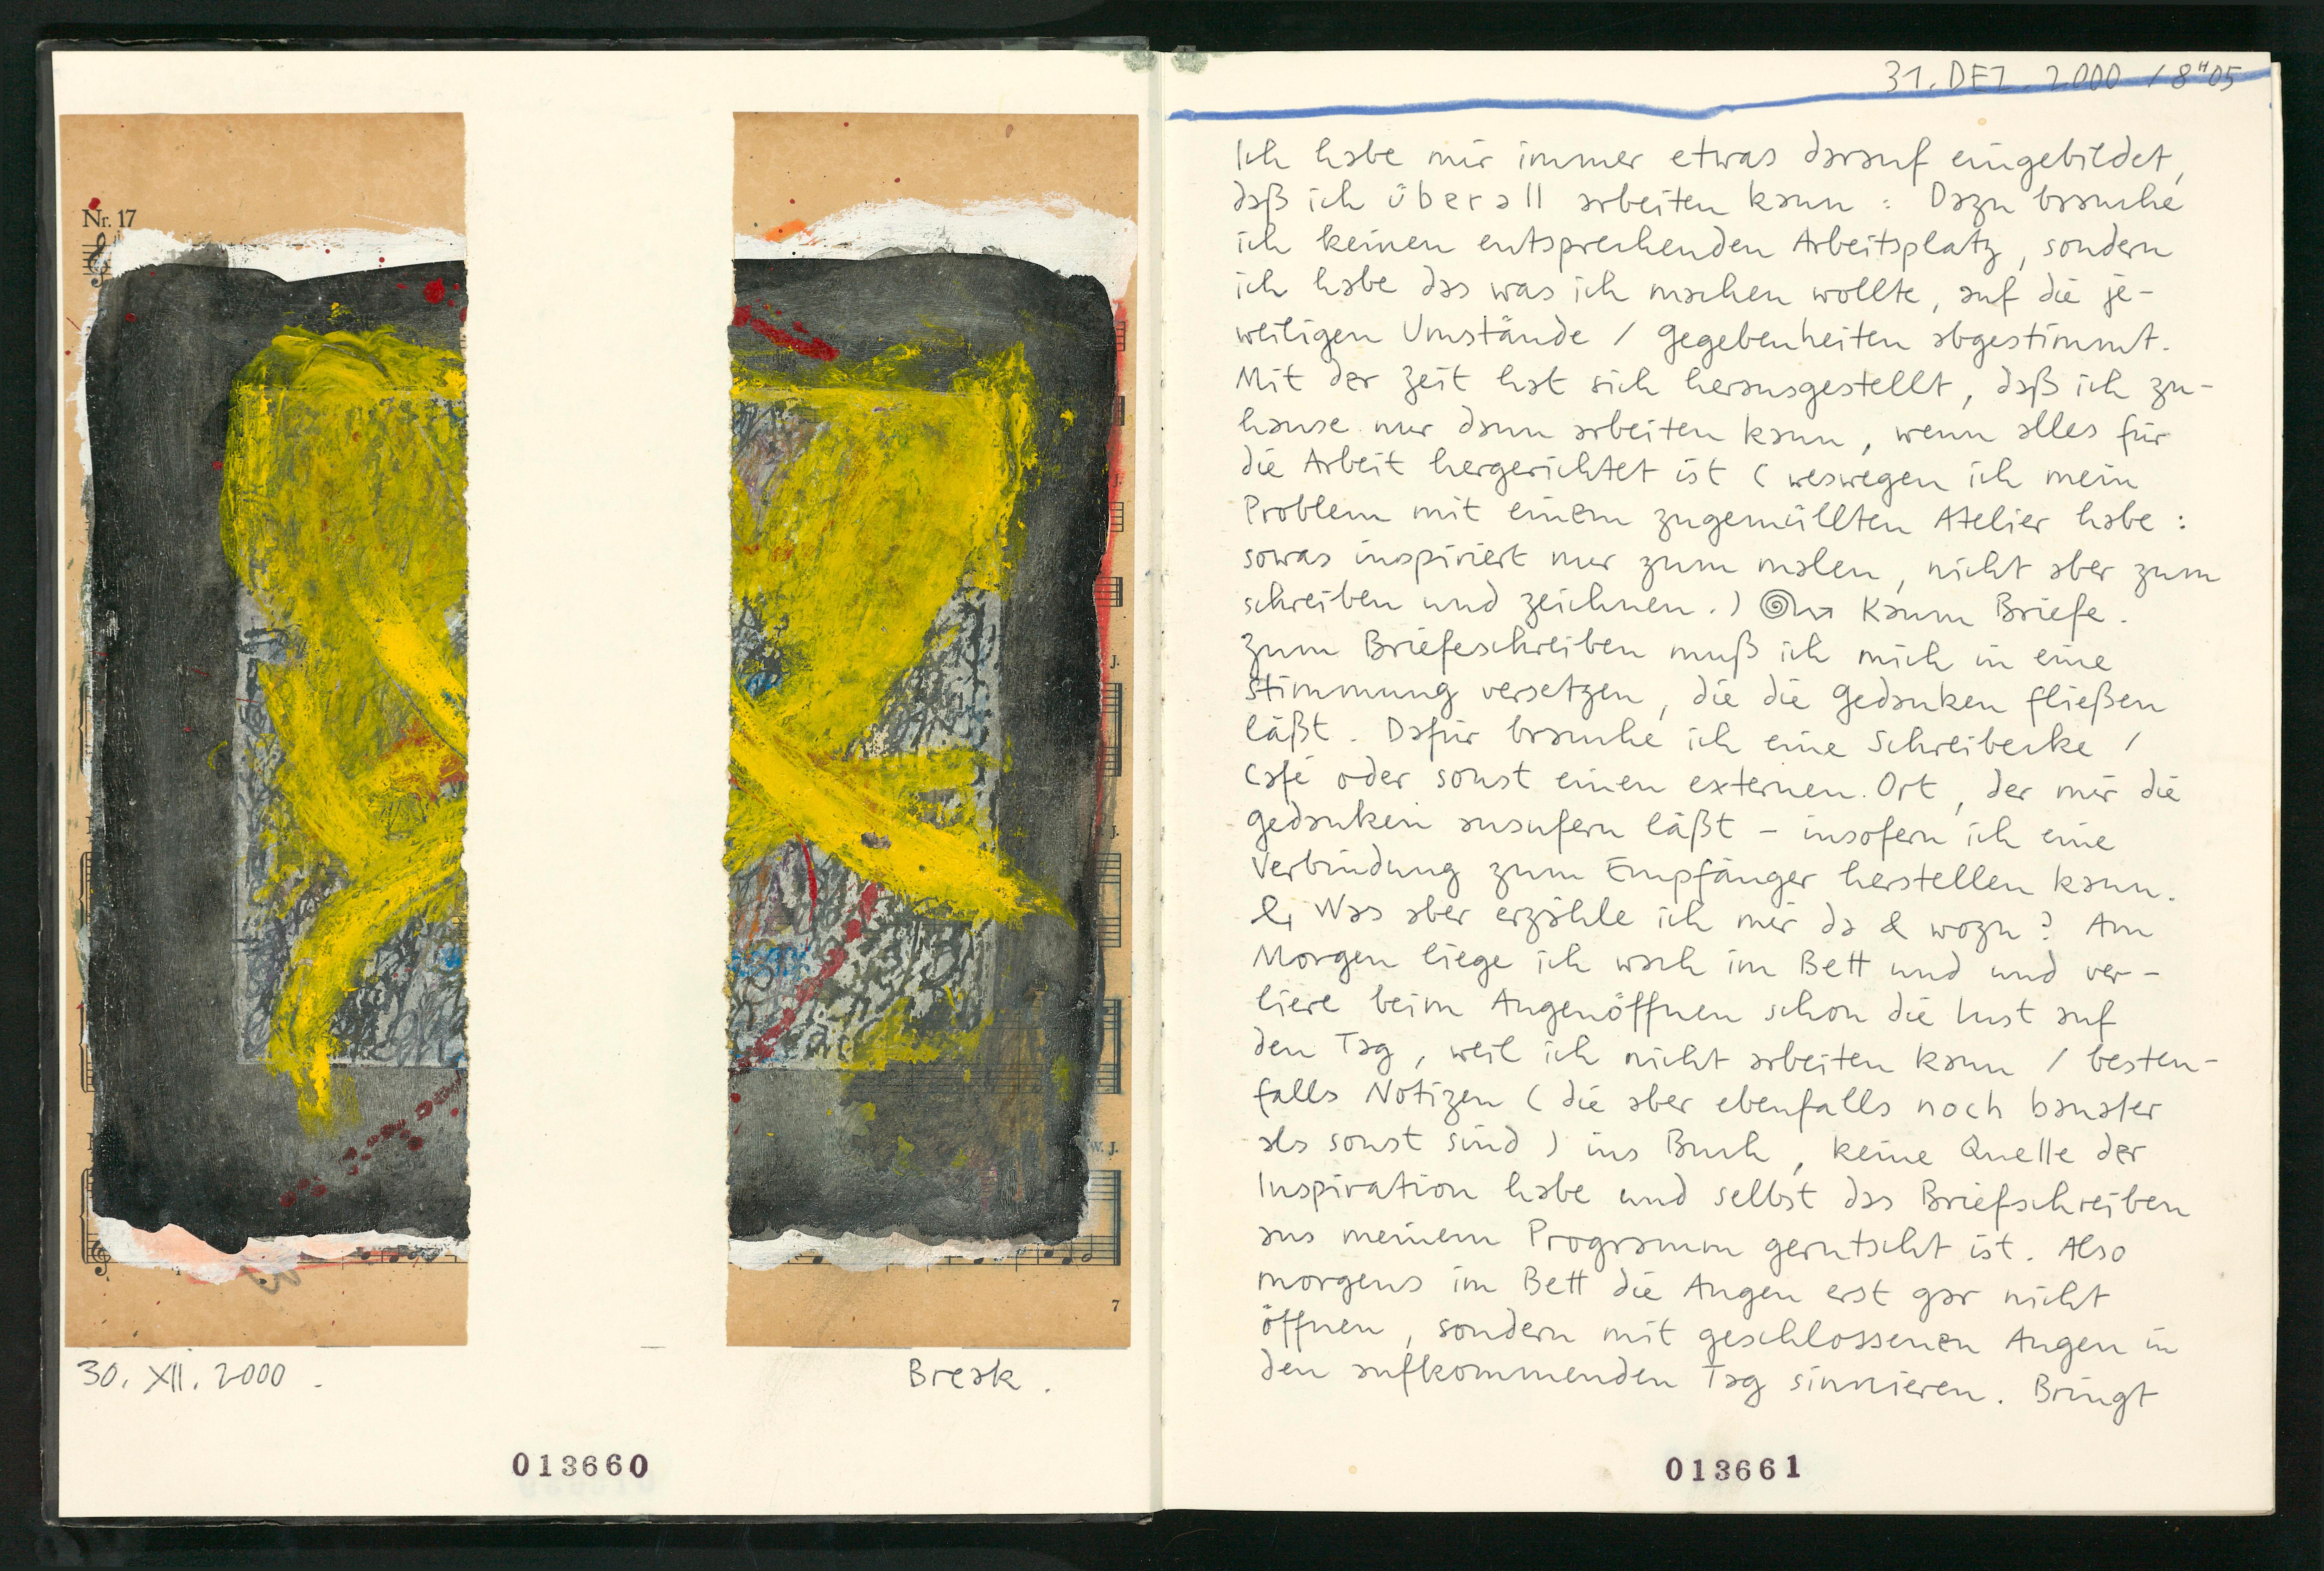 Nr. 17
J.
J.
J.
W. J.
7
30. XII. 2000 .
Break .
013660
31. DEZ. 2000 / 8H05
Ich habe mir immer etwas darauf eingebildet,
daß ich überall arbeiten kann : Dazu brauche
ich keinen entsprechenden Arbeitsplatz, sondern
ich habe das was ich machen wollte, auf die je-
weiligen Umstände / Gegebenheiten abgestimmt.
Mit der Zeit hat sich herausgestellt, daß ich zu-
hause nur dann arbeiten kann, wenn alles für
die Arbeit hergerichtet ist ( weswegen ich mein
Problem mit einem zugemüllten Atelier habe :
sowas inspiriert nur zum malen, nicht aber zum
schreiben und zeichnen. ) Kaum Briefe.
Zum Briefeschreiben muß ich mich in eine
Stimmung versetzen, die die Gedanken fließen
läßt. Dafür brauche ich eine Schreibecke /
Café oder sonst einen externen Ort, der mir die
Gedanken ausufern läßt – insofern ich eine
Verbindung zum Empfänger herstellen kann.
Was aber erzähle ich mir da & wozu? Am
Morgen liege ich wach im Bett und und ver-
liere beim Augenöffnen schon die Lust auf
den Tag, weil ich nicht arbeiten kann / besten-
falls Notizen ( die aber ebenfalls noch banaler
als sonst sind ) ins Buch, keine Quelle der
Inspiration habe und selbst das Briefschreiben
aus meinem Programm gerutscht ist. Also
morgens im Bett die Augen erst gar nicht
öffnen, sondern mit geschlossenen Augen in
den aufkommenden Tag sinnieren. Bringt
013661